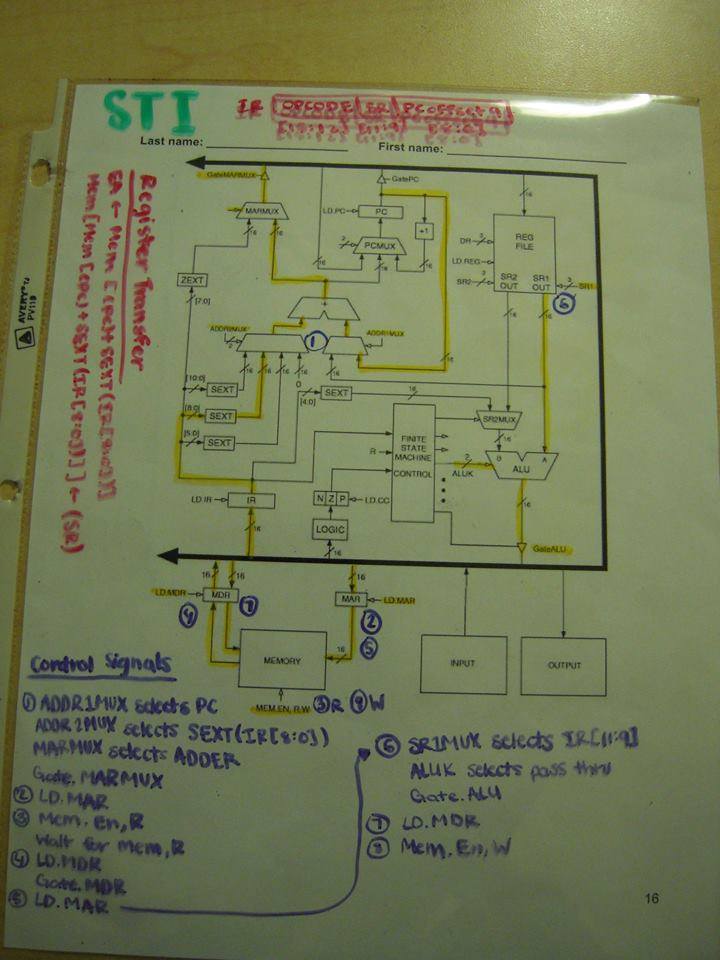 STI
IR OPCODE|SR|PCoffset9
[15:12] [11:9] [8:0]
Last name: First name:
Register Transfer
EA ← Mem [(PC)+SEXT(IR[8:0])]
Mem[Mem[(PC)+SEXT(IR[8:0])]] ← (SR)
AVERY
PV119
GateMARMUX
GatePC
16
MARMUX
LD.PC
PC
+1
PCMUX
2
16
16
16
16
REG
FILE
DR
3
LD.REG
SR2
3
SR2
OUT
SR1
OUT
3
SR1
6
ZEXT
[7:0]
+
ADDR2MUX
2
1
ADDR1MUX
16
16
16
16
16
16
16
[10:0]
SEXT
0
[4:0]
SEXT
16
[8:0]
SEXT
[5:0]
SEXT
SR2MUX
16
FINITE
STATE
MACHINE
CONTROL
R
2
ALUK
B
ALU
A
LD.IR
IR
N Z P
LD.CC
LOGIC
16
16
16
GateALU
16
16
16
LD.MDR
MDR
MAR
LD.MAR
4
7
2
5
MEMORY
16
INPUT
OUTPUT
MEM.EN, R.W
3 R 8 W
Control Signals
1 ADDR1MUX selects PC
ADDR2MUX selects SEXT(IR[8:0])
MARMUX selects ADDER
Gate.MARMUX
2 LD.MAR
3 Mem.En,R
Wait for mem,R
4 LD.MDR
Gate.MDR
5 LD.MAR
6 SR1MUX selects IR[11:9]
ALUK selects pass thru
Gate.ALU
7 LD.MDR
8 Mem.En,W
16